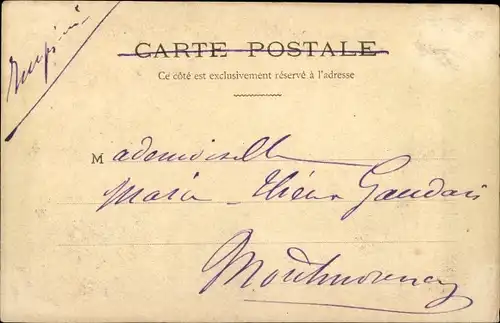 Imprimé
CARTE POSTALE
Ce côté est exclusivement réservé à l'adresse
Mademoiselle
Marie-
Montmorency